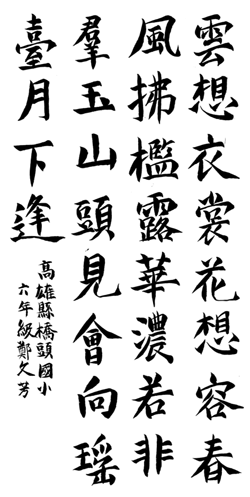 雲想衣裳花想容春
風拂檻露華濃若非
羣玉山頭見會向瑶
臺月下逢
高雄縣橋頭國小
六年級鄭久芳